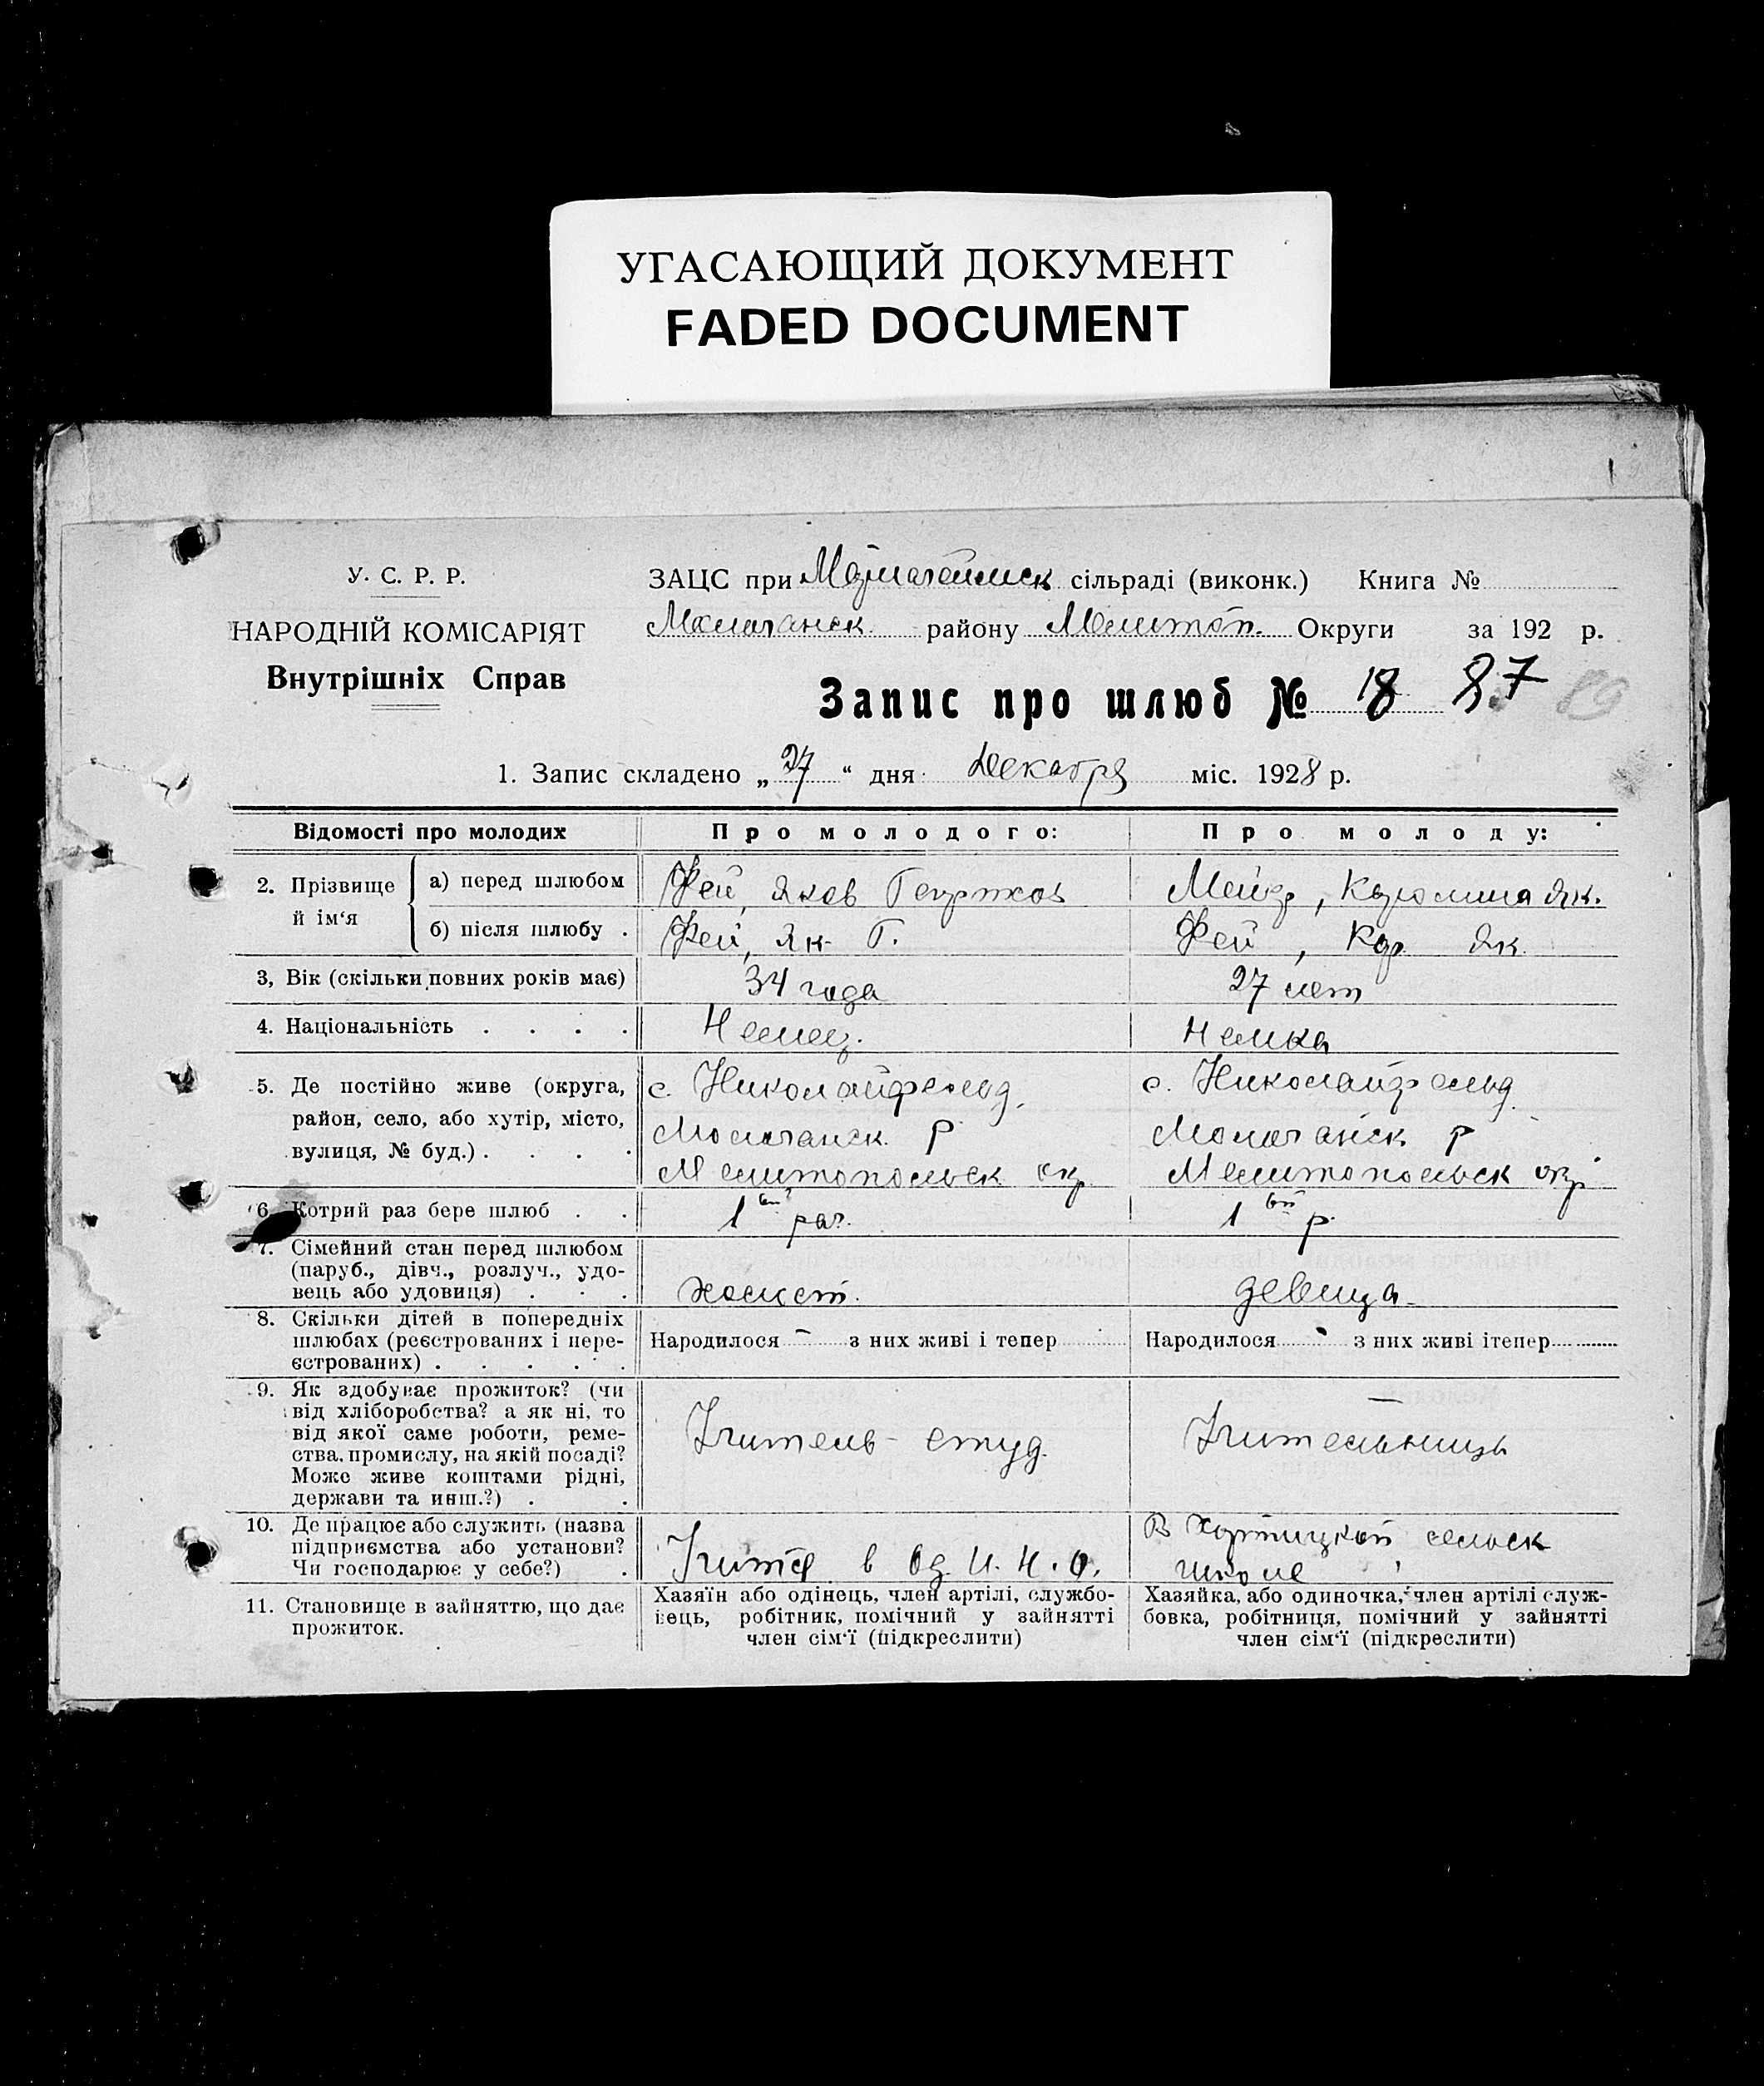 УГАСАЮЩИЙ ДОКУМЕНТ
FADED DOCUMENT
У. С. Р. Р.
НАРОДНІЙ КОМІСАРІЯТ
Внутрішніх Справ
ЗАЦС при сільраді (виконк.) Книга №
Молочанск району Мелитоп. Округи за 192 р.
Запис про шлюб № 18 87 89
1. Запис складено „27“ дня Декабря міс. 1928 р.
Відомості про молодих Про молодого: Про молоду:
2. Прізвище й ім‘я
а) перед шлюбом Фей, Яков Як.
б) після шлюбу . Фей, Як. Г. Фей, Кар. Як.
3, Вік (скільки повних років має) 34 года 27 лет
4. Національність . . . . Немец. Немка
5. Де постійно живе (округа, район, село, або хутір, місто, вулиця, № буд.) . . . .
с. Николайфельд, Молочанск. р Мелитопольск окр.
с. Николайфельд. Молочанск р Мелитопольск окр
6. Котрий раз бере шлюб . . 1ый раз. 1ый р.
7. Сімейний стан перед шлюбом
(паруб., дівч., розлуч., удо-
вець або удовиця) . . . холост. девица.
8. Скільки дітей в попередніх
шлюбах (реєстрованих і нере-
єстрованих) . . . . . .
Народилося – з них живі і тепер
Народилося - з них живі ітепер
9. Як здобуває прожиток? (чи
від хліборобства? а як ні, то
від якої саме роботи, реме-
ства, промислу, на якій посаді?
Може живе коштами рідні,
держави та инш.?) . .
Учитель - студ. Учительница
10. Де працює або служить (назва
підприємства або установи?
Чи господарює у себе?) .
в Од. И. Н. О.
В Хортицкой сельск
школе
11. Становище в зайняттю, що дає
прожиток.
Хазяїн або одінець, член артілі, службо-
вець, робітник, помічний у зайнятті
член сім‘ї (підкреслити)
Хазяйка, або одиночка, член артілі служ-
бовка, робітниця, помічний у зайнятті
член сім‘ї (підкреслити)